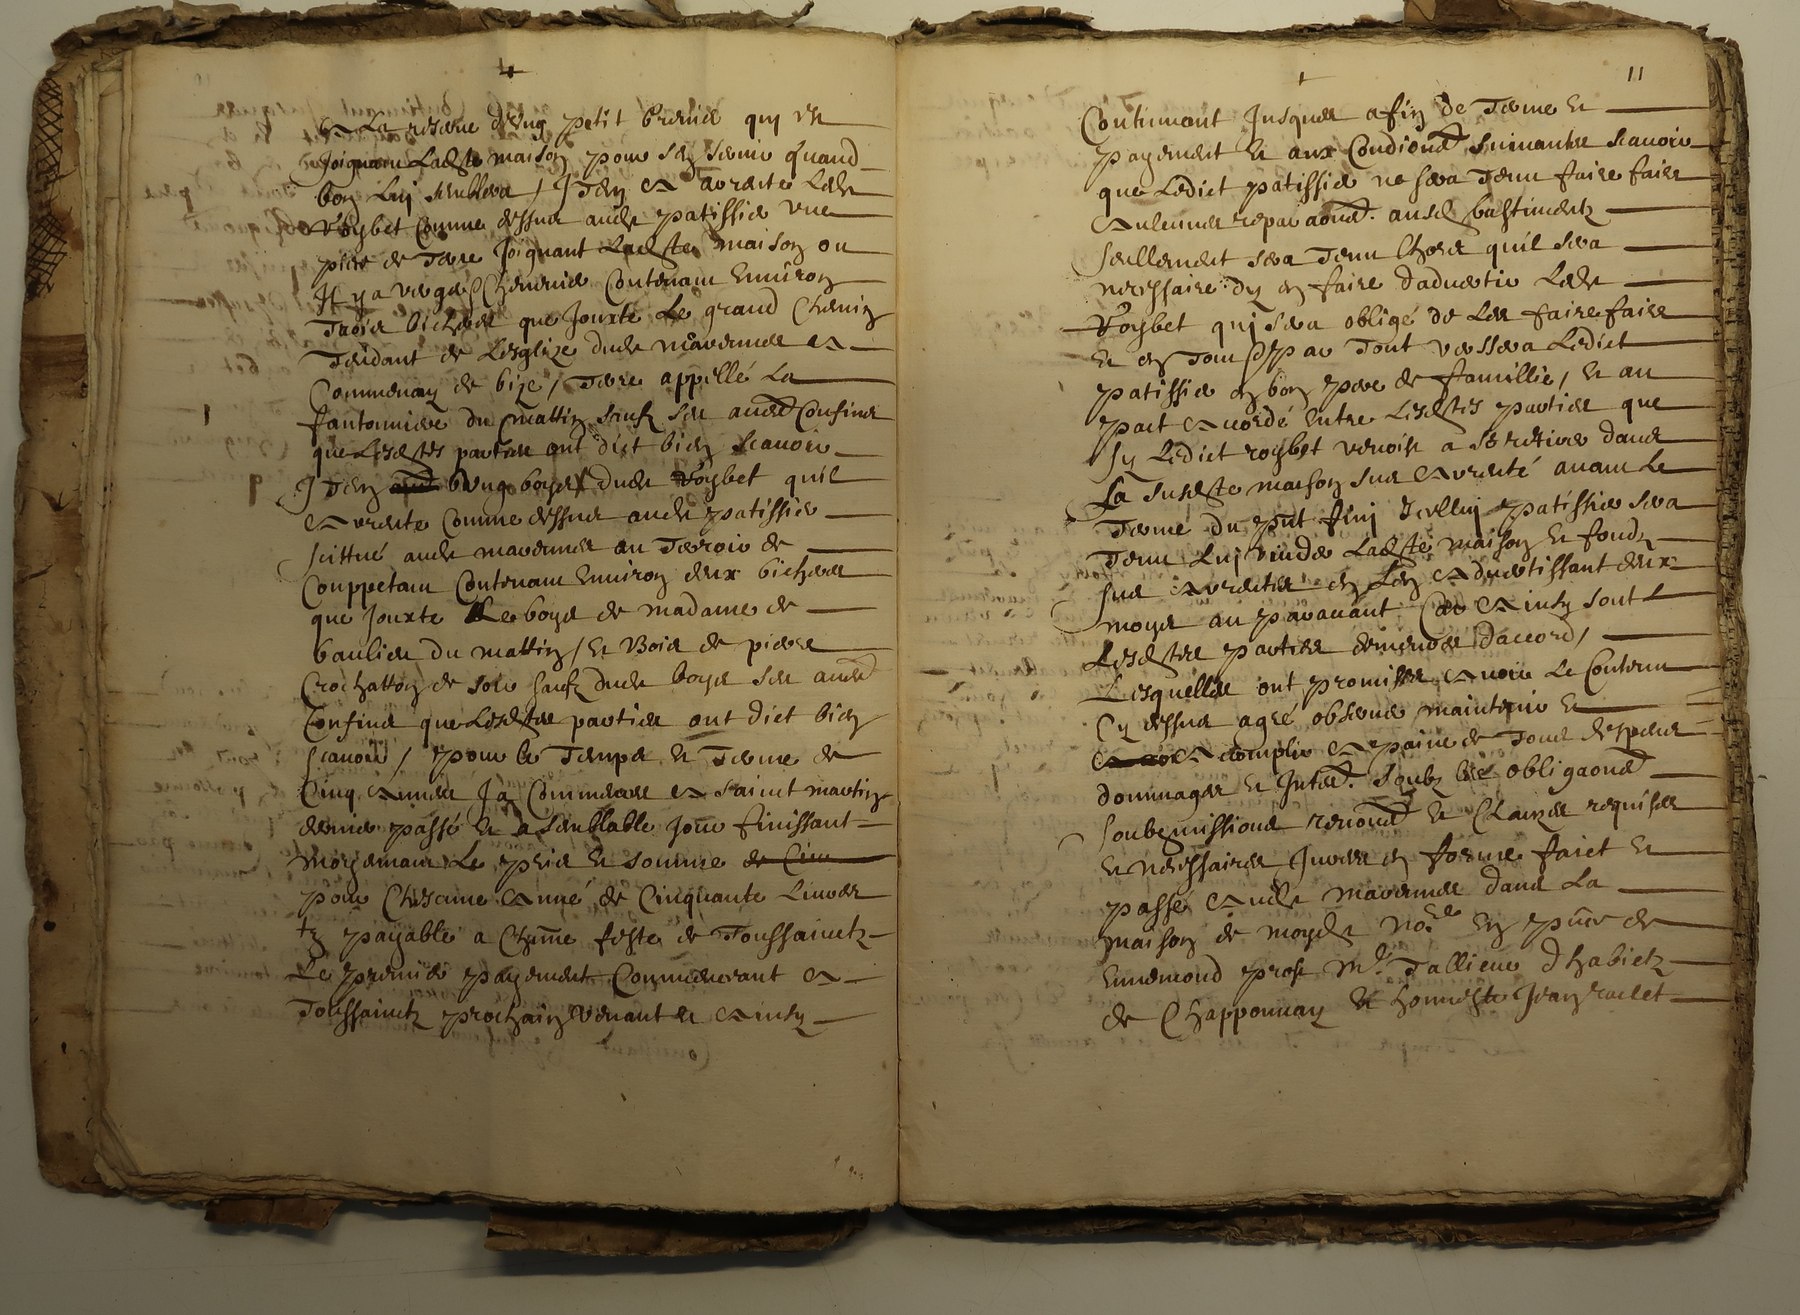 a La reserve d'ung petit Cremie quy est
joignant Ladte maison pour sen servir quand
bon Luy semblera / Item a arrente Ledt
Roybet Comme dessus audt patissie une
piece de Terre Joignant Ladte maison ou
Il y a verger Contenant Environ
Trois bicheres que Jouxte Le grand Chemin
Tendant de Lesglize dudt marennes a
Commenay de bize / Terre appellé La
fantonniere du mattin sauf ses aud Confins
que Lesdtes parties ont dict bien scavoir
Item bung boys dudt Roybet quil
arrente Comme dessus audt patissie
scittué audt marennes au Terroir de
Couppetain Contenant Environ deux bicheres
que Jouxte Le boys de madame de
baulieu du mattin / et Bois de pierre
Crochatton de soir saufz dudt boys ses aud
Confins que Lesdtes parties ont dict bien
scavoir / pour le Temps et Terme de
Cinq annes Ja Commence a sainct martin
dernier passé et a semblable Jour finissant
moyenant Le pris et somme de Cin
pour Chescune anné de Cinquante Livres
tz payable a Chune feste de Toussainctz
Le premier payement Commencant a
Toussainctz prochain venant et ainsy
11
Continuant Jusques a fin de Terme et
payement et aux Condions suivantes scavoir
que Ledict patissie ne sera Tenu faire faire
aulcunes reparaons ausd bastimentz
seullement sera Tenu Lhors quil sera
necessaire dy en faire dadvertir Ledt
Roybet quy sera obligé de Les faire faire
et en Tout par Tout versera Ledict
patissie en bon pere de famillie / et au
pact acordé Entre Lesdtes parties que
sy Ledict roybet venoit a se retirer dans
La susdte maison sus arrenté avant Le
Terme du pnt finy Icelluy patissie sera
Tenu Luy vuider Ladte maison et fondz
sus arrentes en Len advertissant deux
moys au paravant Car ainsy sont
Lesdtes parties demeures daccord /
Lesquelles ont promisses avoir Le Contenu
Cy dessus agré observer maintenir et
acomplir a paine de Tous despens
dommages et Interes. soubz Les obligaons
soubzmissions renons et Clauzes requises
et necessaires Jurees en forme faict et
passé audt marennes dans La
maison de moydt nore En pnce de
Ennemond profst Mr Tallieur dhabictz
de Chapponnay et honneste Jean raclet